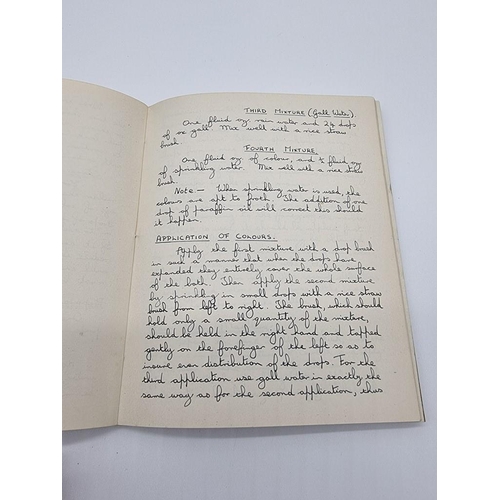 THIRD MIXTURE (Gall Water.)
One fluid oz rain water and 24 drops
of ox gall. Mix well with a rice straw
brush.
FOURTH MIXTURE
One fluid oz of colour, and ½ fluid oz
of sprinkling water. Mix well with a rice straw
brush.
Note — When sprinkling water is used, the
colours are apt to froth. The addition of one
drop of paraffin oil will correct this should
it happen.
APPLICATION OF COLOURS.
Apply the first mixture with a drop brush
in such a manner that when the drops have
expanded they entirely cover the whole surface
of the bath. Then apply the second mixture
by sprinkling in small drops with a rice straw
brush from left to right. The brush, which should
hold only a small quantity of the mixture,
should be held in the right hand and tapped
gently on the forefinger of the left so as to
insure even distribution of the drops. For the
third application use gall water in exactly the
same way as for the second application, thus